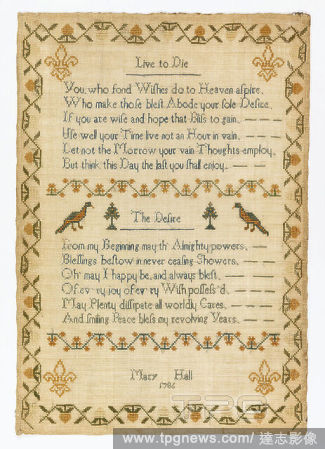 Live to Die
You, who fond Wiſhes do to Heaven aſpire,
Who make thoſe bleſt Abode your ſole Deſire,
If you are wiſe and hope that Bliſs to gain,
Uſe well your Time live not an Hour in vain,
Let not the Morrow your vain Thoughts employ,
But think this Day the laſt you ſhall enjoy,
The Deſire
From my Beginning may th' Almighty powers,
Bleſsings beſtow in never ceaſing Showers,
Oh' may I happy be, and always bleſt,
Of ev'ry joy of ev'ry Wiſh poſſeſs'd,
May Plenty diſsipate all worldly Cares,
And ſmiling Peace bleſs my revolving Years.
Mary Hall
1786
TPG
www.tpgnews.com/ 達志影像